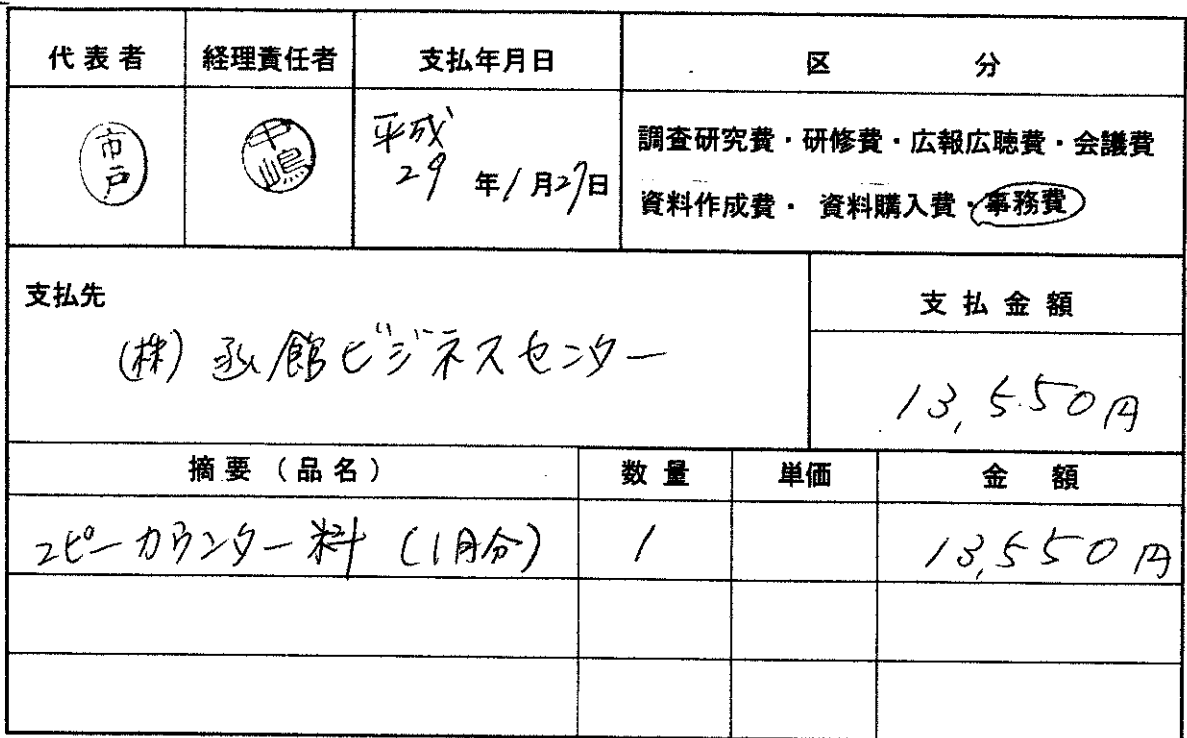 代表者 経理責任者 支払年月日 区 分
市戸 中嶋 平成29年1月27日
調査研究費・研修費・広報広聴費・会議費
資料作成費・ 資料購入費・事務費
支払先 支払金額
(株) 函館ビジネスセンター
13,550円
摘要(品名) 数量 単価 金 額
コピーカウンター料 (1月分) 1 13,550円